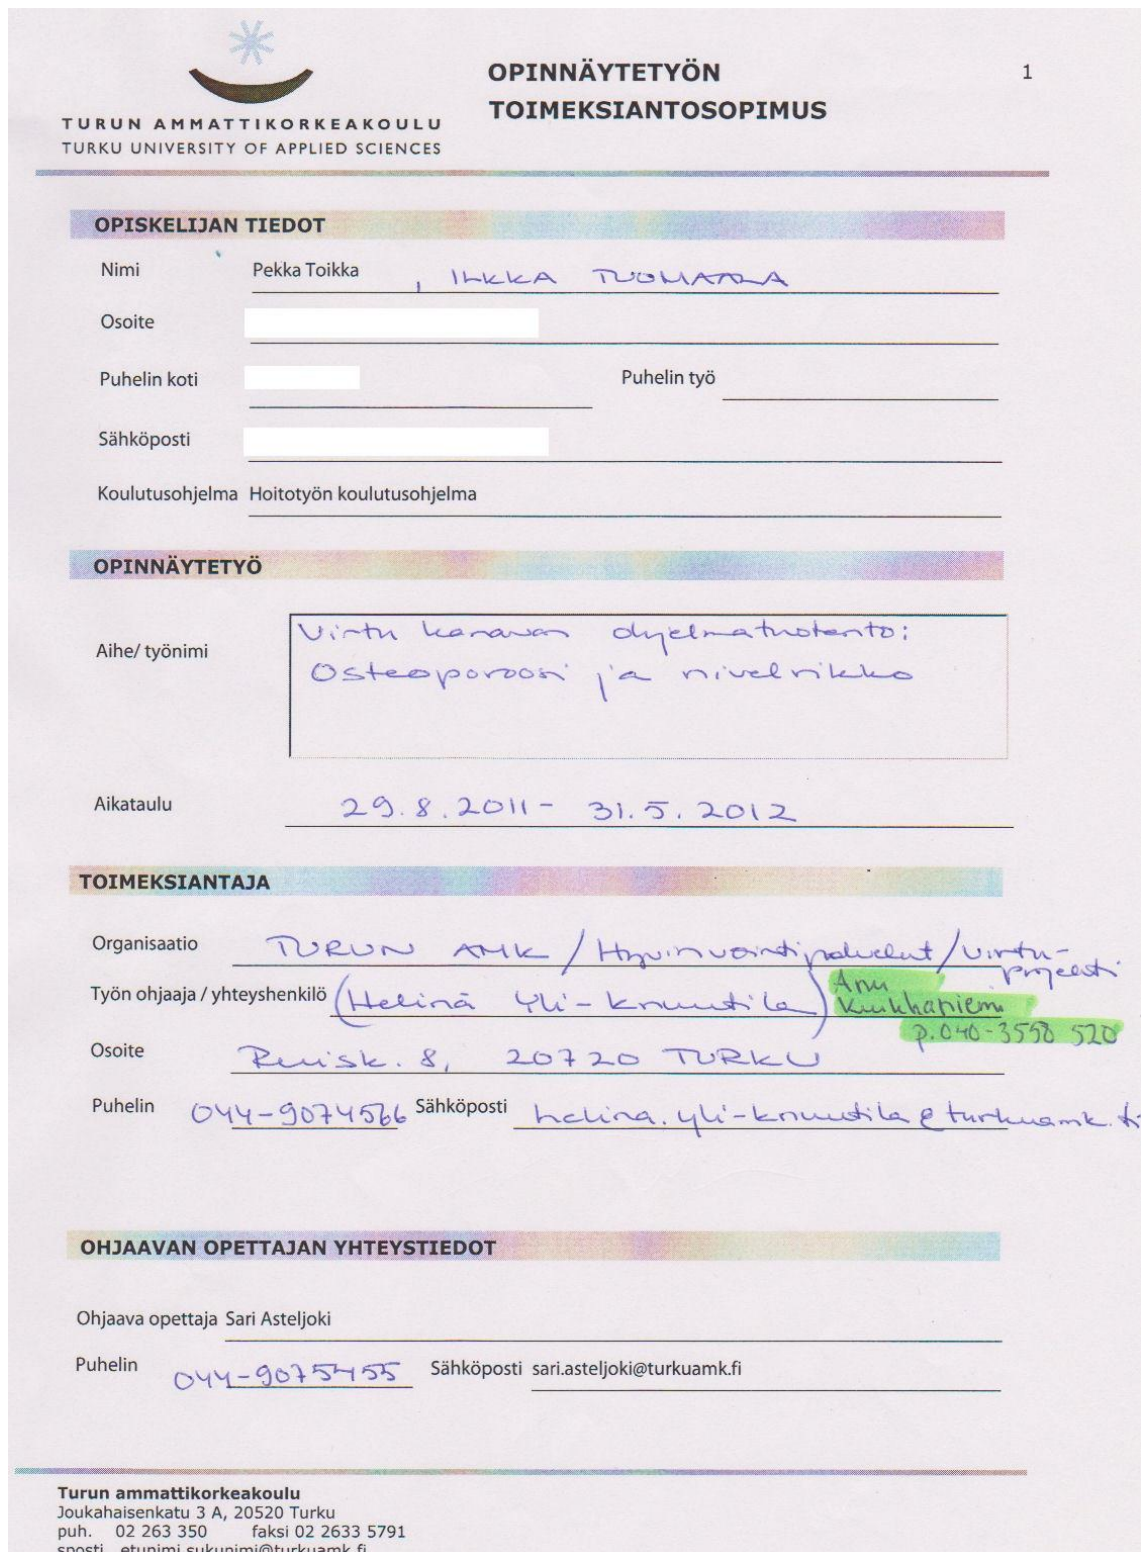 TURUN AMMATTIKORKEAKOULU
TURKU UNIVERSITY OF APPLIED SCIENCES
OPINNÄYTETYÖN
TOIMEKSIANTOSOPIMUS
1
OPISKELIJAN TIEDOT
Nimi Pekka Toikka , ILKKA TUOMAALA
Osoite
Puhelin koti Puhelin työ
Sähköposti
Koulutusohjelma Hoitotyön koulutusohjelma
OPINNÄYTETYÖ
Aihe/ työnimi
Virtu kanavan ohjelmatuotanto:
Osteoporoosi ja nivelrikko
Aikataulu 29.8.2011- 31.5.2012
TOIMEKSIANTAJA
Organisaatio TURUN AMK / Hyvinvointipalvelut / Virtu-
projekti
Työn ohjaaja / yhteyshenkilö (Helinä Yli-Knuutila) Anu
p.040-3558 520
Osoite Ruisk. 8, 20720 TURKU
Puhelin 044-9074566 Sähköposti helina.yli-knuutila@turkuamk.fi
OHJAAVAN OPETTAJAN YHTEYSTIEDOT
Ohjaava opettaja Sari Asteljoki
Puhelin 044-9075455 Sähköposti sari.asteljoki@turkuamk.fi
Turun ammattikorkeakoulu
Joukahaisenkatu 3 A, 20520 Turku
puh. 02 263 350 faksi 02 2633 5791
sposti etunimi.sukunimi@turkuamk.fi